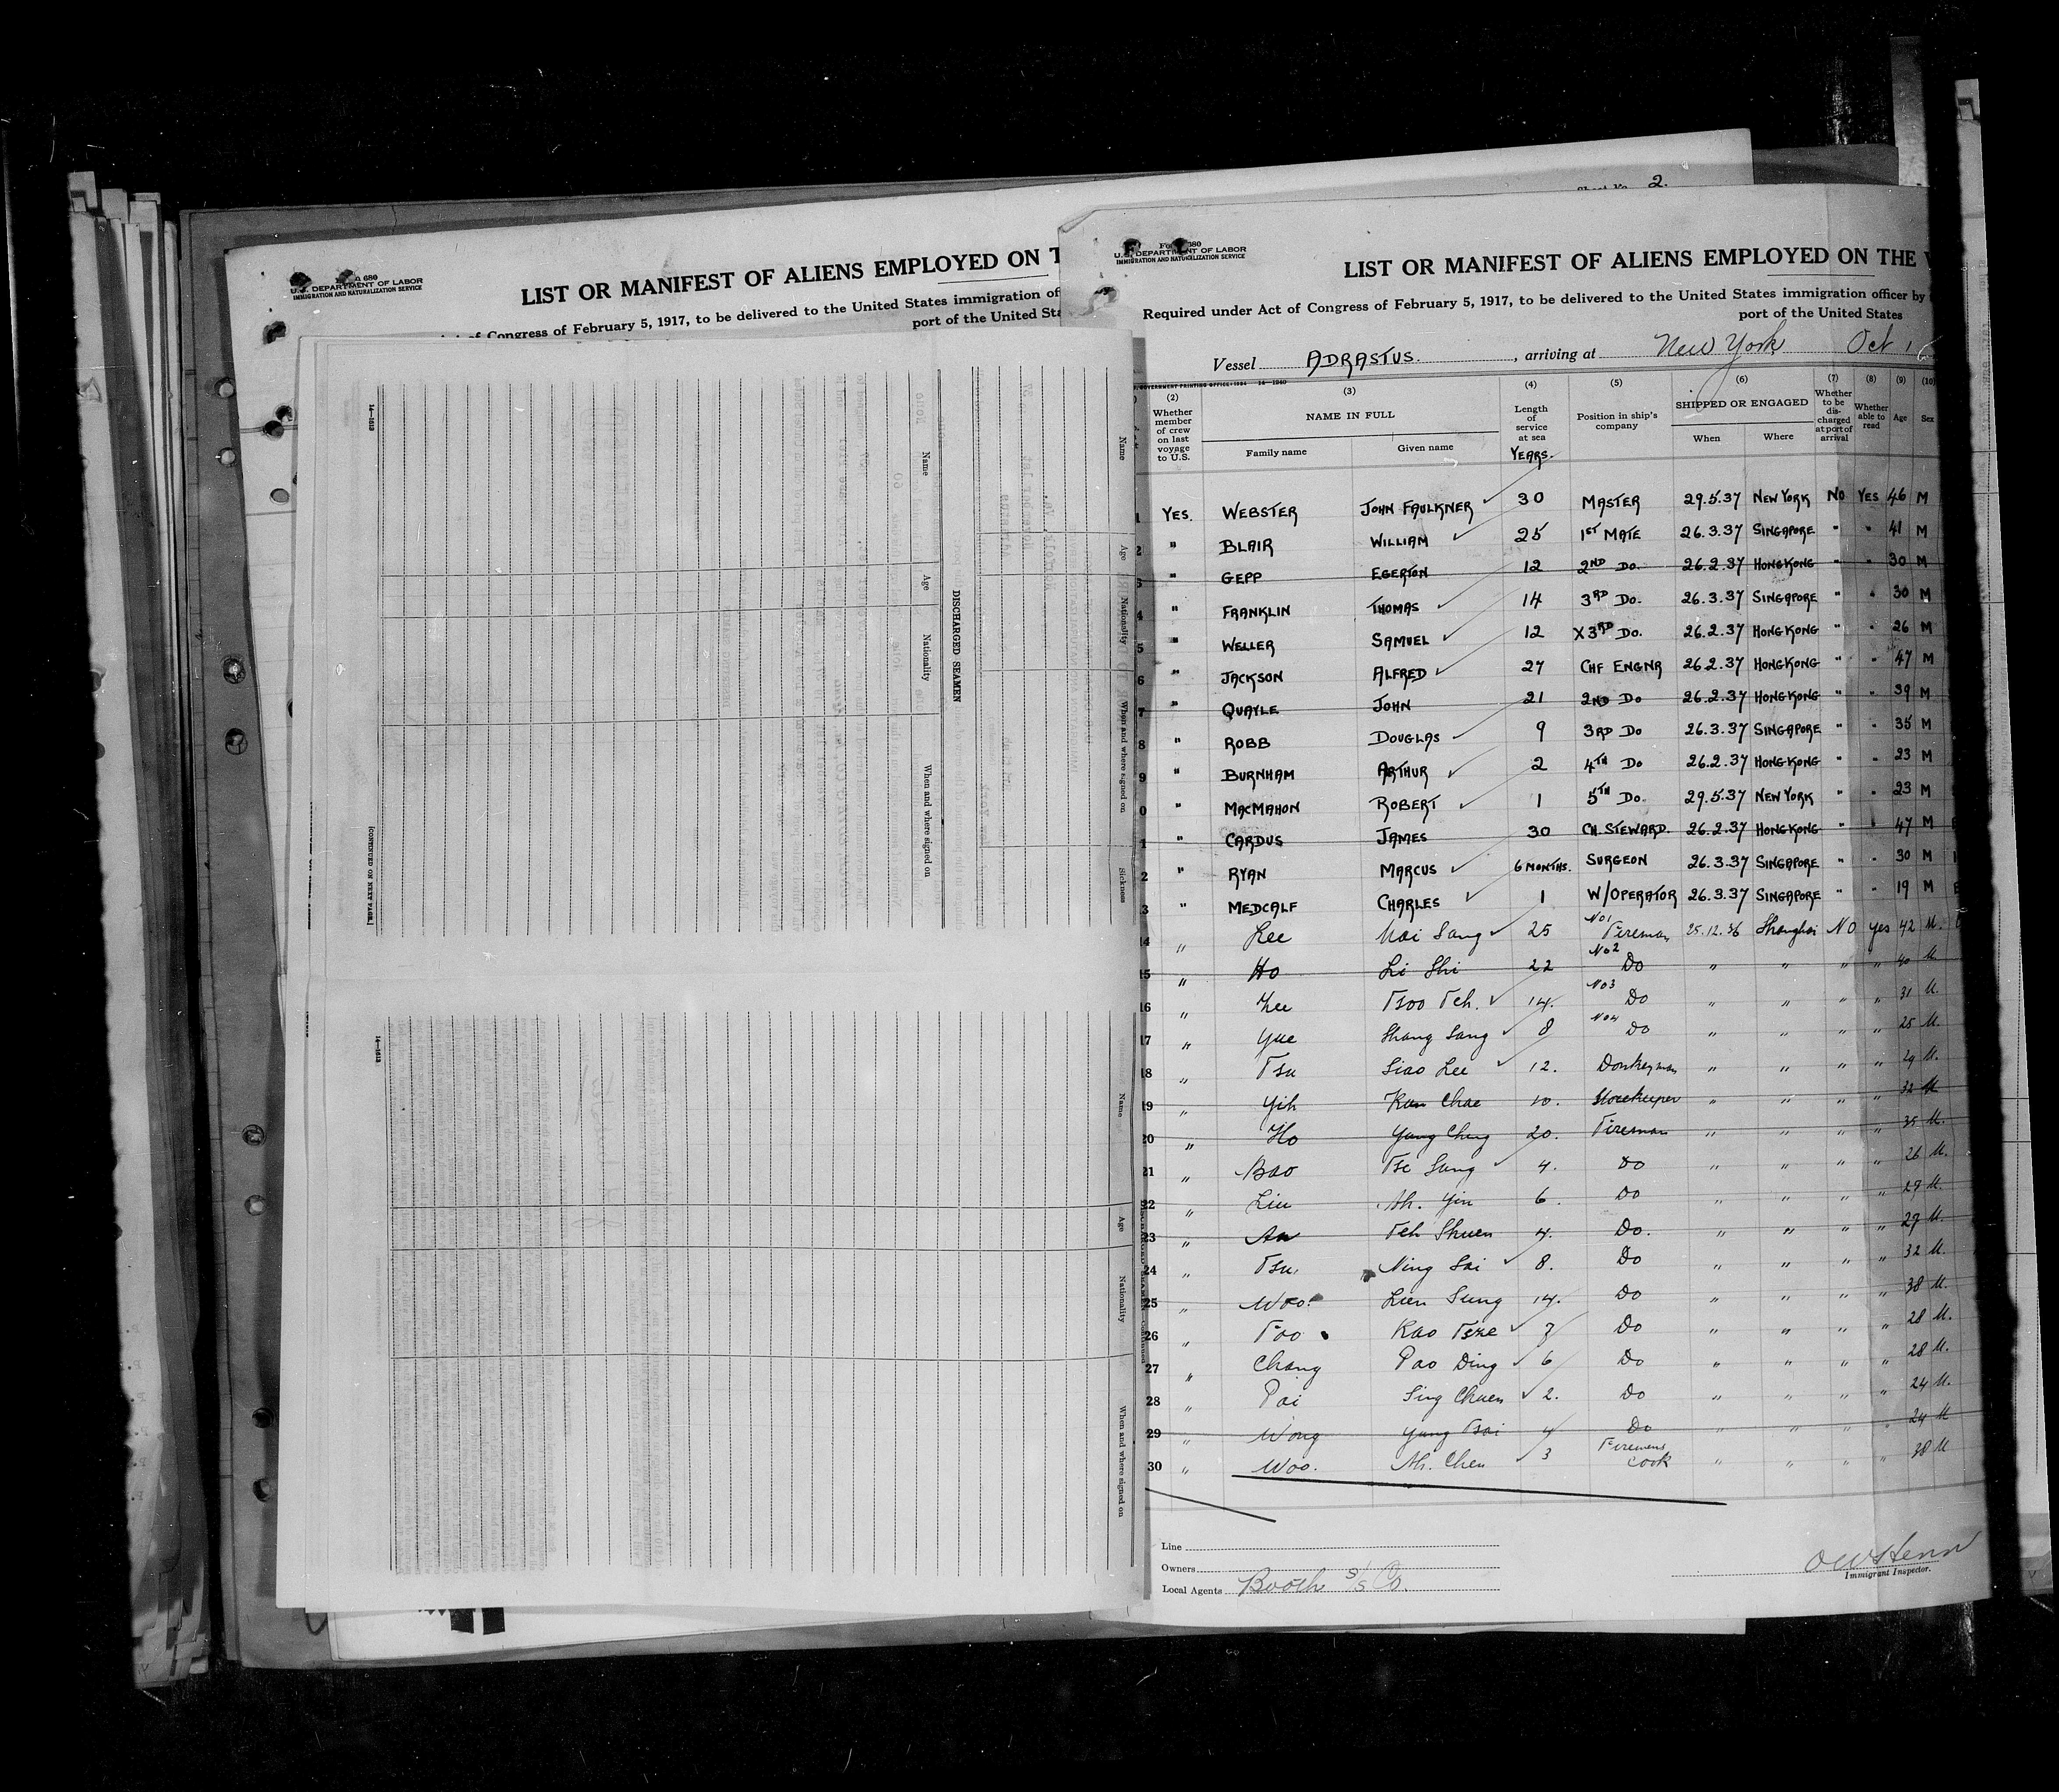 Sheet No. 2.
Form 680
U.S. DEPARTMENT OF LABOR
IMMIGRATION AND NATURALIZATION SERVICE
LIST OR MANIFEST OF ALIENS EMPLOYED ON T
of Congress of February 5, 1917, to be delivered to the United States immigration of
port of the United Sta
14—1613
Name
Age
Nationality
When and where signed on
DISCHARGED SEAMEN
Name
Age
Nationality
When and where signed on
Sickness
[CONTINUED ON NEXT PAGE.]
14—1613
Name
Age
Nationality
When and where signed on
680
U.S. DEPARTMENT OF LABOR
IMMIGRATION AND NATURALIZATION SERVICE
LIST OR MANIFEST OF ALIENS EMPLOYED ON THE V
Required under Act of Congress of February 5, 1917, to be delivered to the United States immigration officer by
port of the United States
Vessel ADRASTUS. , arriving at New York Oct 1
GOVERNMENT PRINTING OFFICE
(2) (3) (4) (5) (6) (7) (8) (9) (10)
Whether member of crew on last voyage to U.S. NAME IN FULL Length of service at sea Position in ship's company SHIPPED OR ENGAGED Whether to be discharged at port of arrival Whether able to read Age Sex
Family name Given name YEARS. When Where
1 YES. WEBSTER JOHN FAULKNER ✓ 30 MASTER 29.5.37 NEW YORK NO YES 46 M
2 " BLAIR WILLIAM ✓ 25 1ST MATE 26.3.37 SINGAPORE " " 41 M
3 " GEPP EGERTON 12 2ND DO. 26.2.37 HONGKONG " " 30 M
4 " FRANKLIN THOMAS ✓ 14 3RD DO. 26.3.37 SINGAPORE " " 30 M
5 " WELLER SAMUEL ✓ 12 X3RD DO. 26.2.37 HONGKONG " " 26 M
6 " JACKSON ALFRED ✓ 27 CHF ENGNR 26.2.37 HONGKONG " " 47 M
7 " QUAYLE JOHN 21 2ND DO 26.2.37 HONGKONG " " 39 M
8 " ROBB DOUGLAS ✓ 9 3RD DO 26.3.37 SINGAPORE " " 35 M
9 " BURNHAM ARTHUR ✓ 2 4TH DO 26.2.37 HONGKONG " " 23 M
0 " MACMAHON ROBERT ✓ 1 5TH DO. 29.5.37 NEW YORK " " 23 M
1 " CARDUS JAMES 30 CH. STEWARD. 26.2.37 HONGKONG " " 47 M
2 " RYAN MARCUS ✓ 6 MONTHS. SURGEON 26.3.37 SINGAPORE " " 30 M
3 " MEDCALF CHARLES ✓ 1 W/OPERATOR 26.3.37 SINGAPORE " " 19 M
14 " Lee Sang ✓ 25 No1 Fireman 25.12.36 Shanghai NO yes 42 M.
15 " Ho Li Shi 22 No2 Do " " " " 40 M
16 " Tsoo Teh. ✓ 14. No3 Do " " " " 31 M.
17 " Yue Shang Sang ✓ 8 No4 Do " " " " 25 M.
18 " Tsu Siao Lee ✓ 12. Donkeyman " " " " 29 M.
19 " Yih Kun Chae 10. Storekeeper " " " " 32 M
20 " Ho Yung Ching 20. Fireman " " " " 35 M.
21 " Bao Tse Sung ✓ 4. Do " " " " 26 M.
22 " Liu Ah. Yin 6. Do " " " " 29 M.
23 " Au Teh Shuen 4. Do. " " " " 27 M.
24 " Tsu. Ning Sai ✓ 8. Do " " " " 32 M.
25 " Woo. Lien Sung 14. Do " " " " 38 M.
26 " Foo Kao Tsze ✓ 7 Do " " " " 28 M.
27 " Chang Pao Ding ✓ 6 Do " " " " 28 M.
28 " Pai Sing Chuen ✓ 2. Do " " " " 24 M.
29 " Wong Yung Tsai 4 Do " " " " 24 M
30 " Woo. Ah. Chen ✓ 3 Firemens cook " " " " 38 M
Line
Owners
Local Agents Booth S/S Co.
Immigrant Inspector.